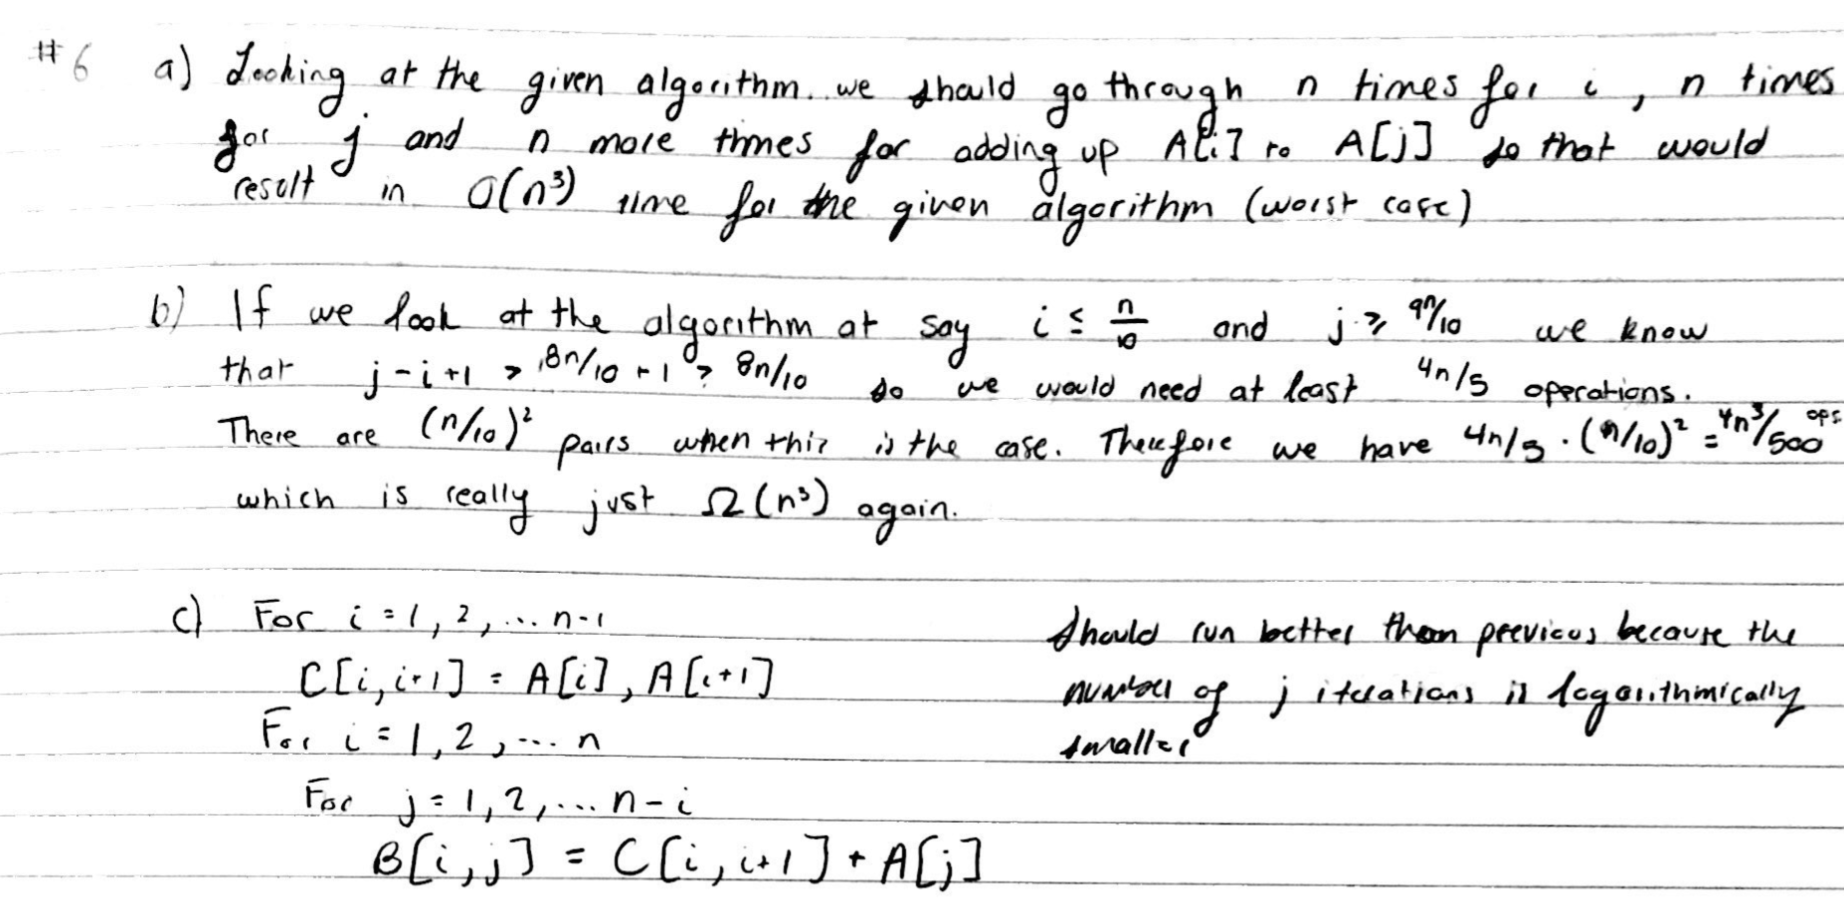 #6 a) Looking at the given algorithm.. we should go through n times for i, n times
for j and n more times for adding up A[i] to A[j] so that would
result in O(n³) time for the given algorithm (worst case)
b) If we look at the algorithm at say i ≤ n/10 and j ≥ 9n/10 we know
that j-i+1 > 8n/10 +1 > 8n/10 so we would need at least 4n/5 operations.
There are (n/10)² pairs when this is the case. Therefore we have 4n/5 · (n/10)² = 4n³/500 ops
which is really just Ω(n³) again.
c) For i = 1, 2, ... n-1
C[i, i+1] = A[i], A[i+1]
For i = 1, 2, ... n
For j = 1, 2, ... n-i
B[i, j] = C[i, i+1] + A[j]
Should run better than previous because the
number of j iterations is logarithmically
smaller